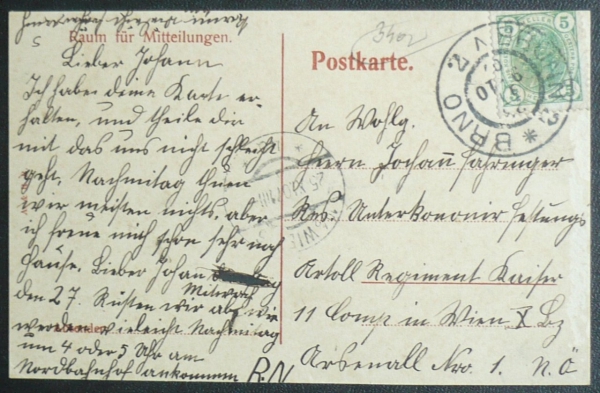 Raum für Mitteilungen.
Lieber Johann
Ich habe deine Karte er-
halten, und theile dir
mit das uns nicht schlecht
geht, Nachmitag thuen
wir meisten nichts, aber
ich freue mich schon sehr nach
Hause. Lieber Johan
Mittwoch
den 27. Rüsten wir ab, wir
werden vieleicht Nachmitag
um 4 oder 5 Uhr am
Nordbahnhof ankommen
R.N
3402
Postkarte.
5
BRÜNN
BRNO
An Wohlg.
Herrn Johann Fahringer
Res. Unterkanonir Festungs
Artoll Regiment Kaiser
11 Comp in Wien X Bz
Arsenall Nro. 1. N.Ö